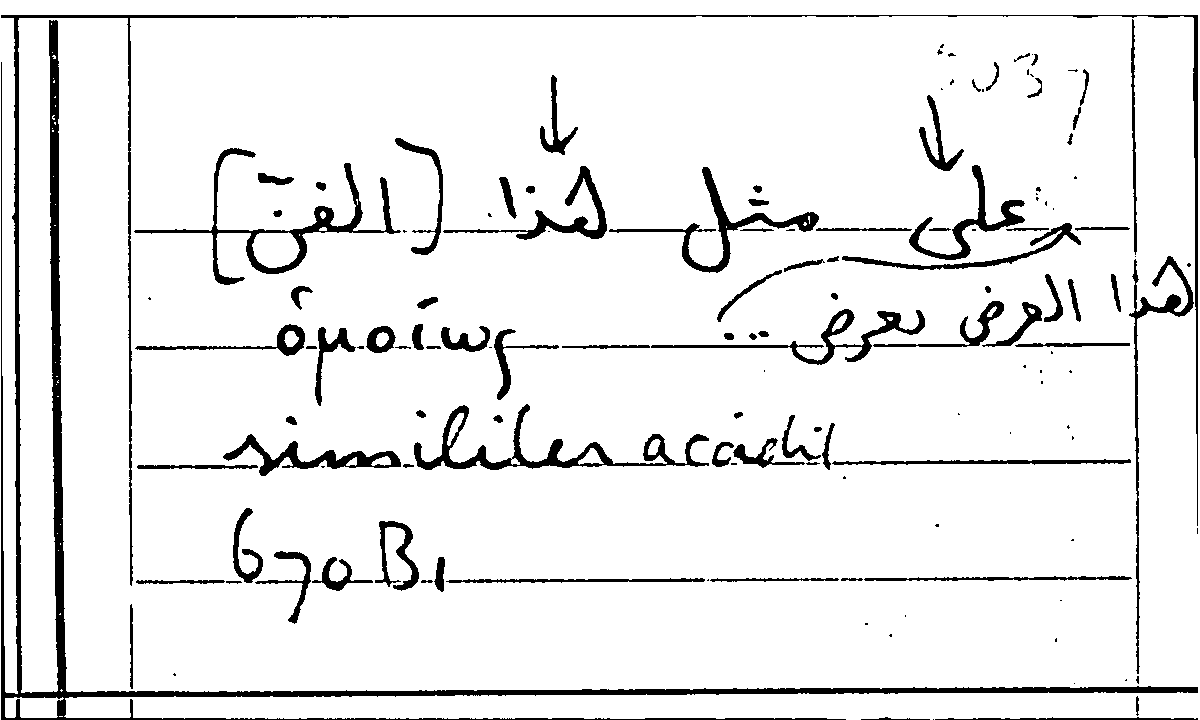 على مثل هذا [الفنّ]
هذا العرض يعرض ...
ὁμοίως
similiter accidit
670B1